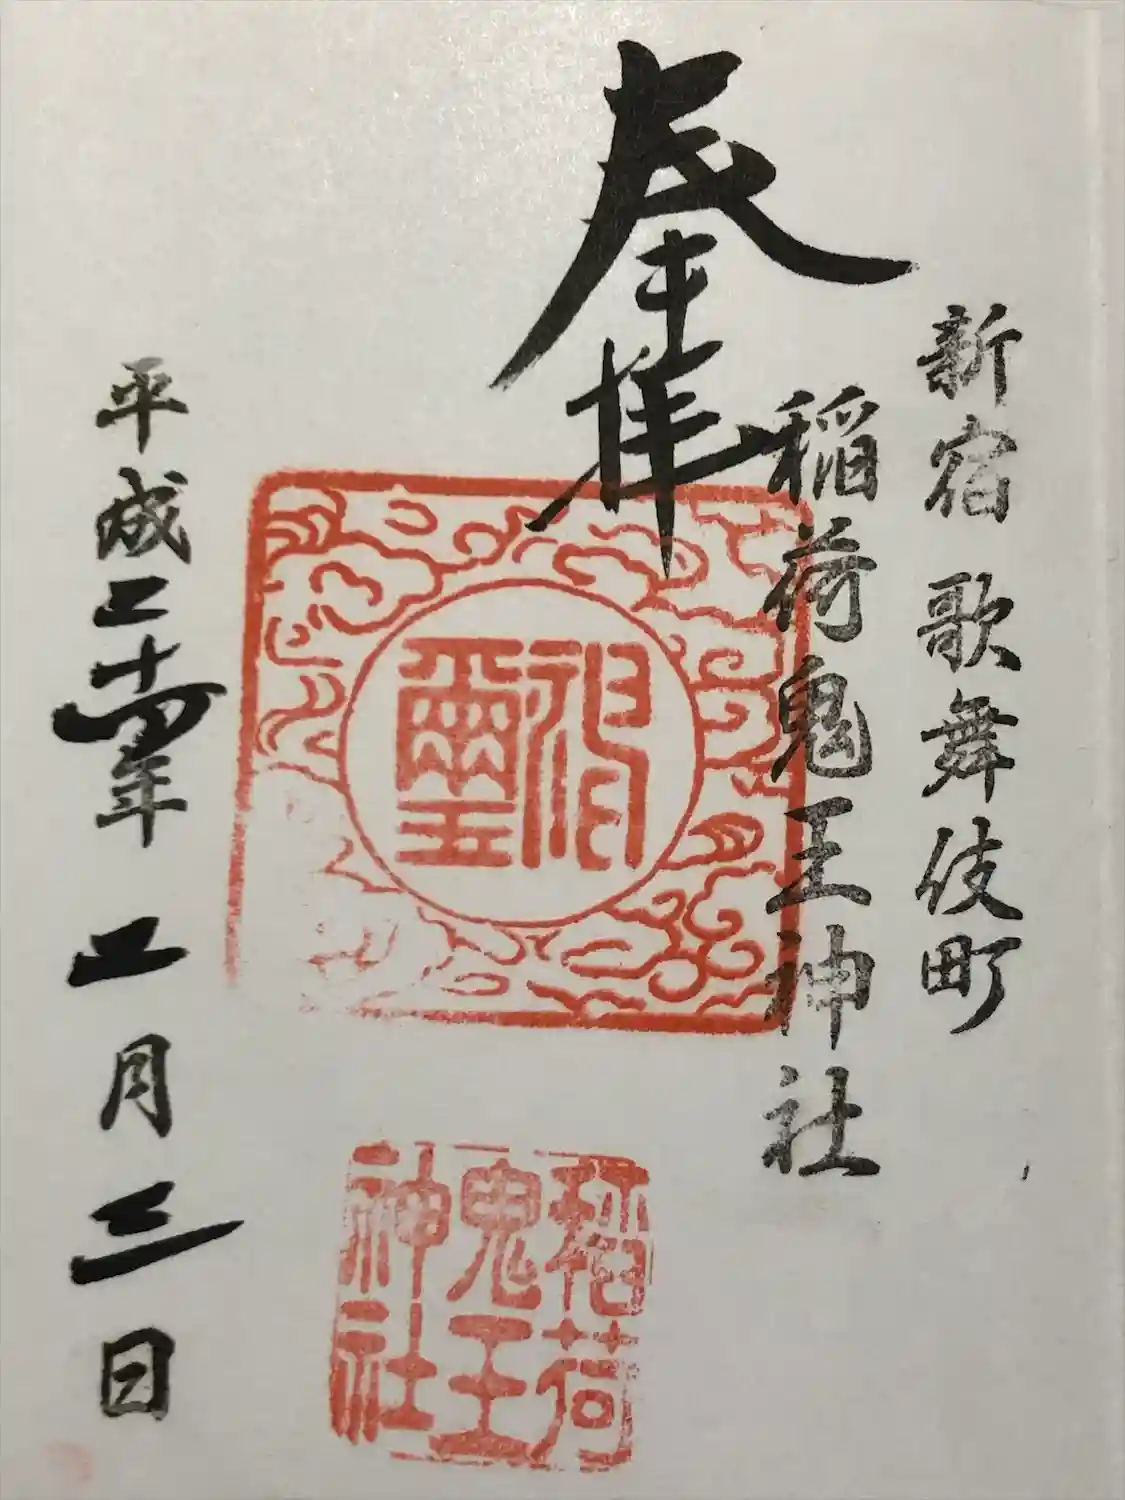 新宿歌舞伎町
稲荷鬼王神社
奉拝
神璽
稲荷
鬼王
神社
平成二十四年二月三日